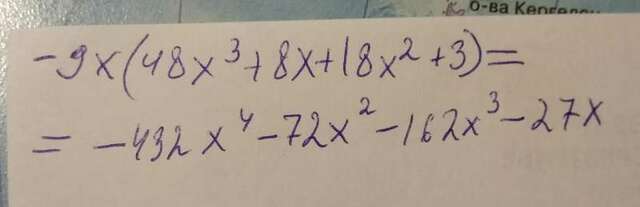 о-ва Кергелен
-9x(48x³+8x+18x²+3)=
= -432x⁴-72x²-162x³-27x